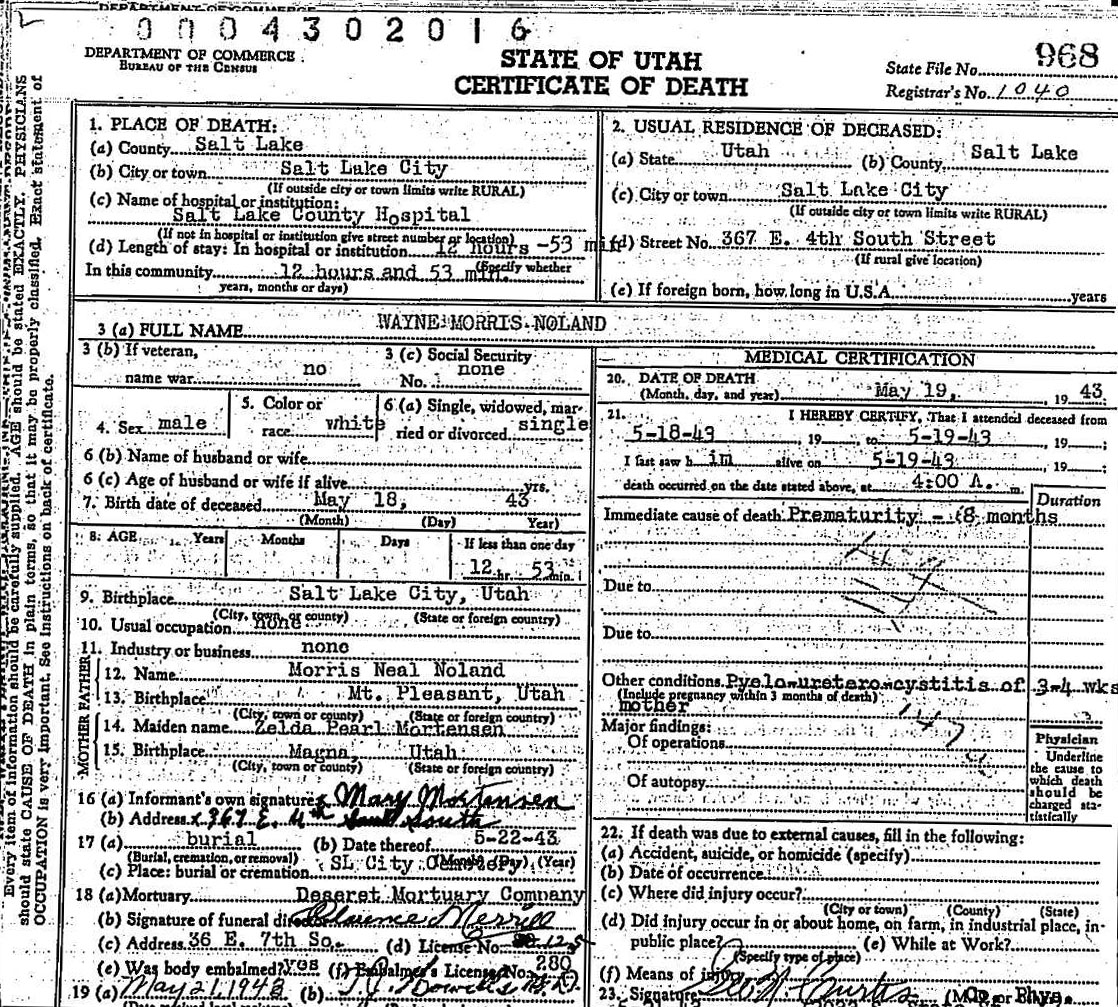 DEPARTMENT OF COMMERCE
0004302016
DEPARTMENT OF COMMERCE
BUREAU OF THE CENSUS
STATE OF UTAH
CERTIFICATE OF DEATH
State File No. 968
Registrar's No. 1040
Every item of information should be carefully supplied. AGE should be stated EXACTLY. PHYSICIANS
should state CAUSE OF DEATH in plain terms, so that it may be properly classified. Exact statement of
OCCUPATION is very important. See instructions on back of certificate.
1. PLACE OF DEATH:
(a) County Salt Lake
(b) City or town Salt Lake City
(If outside city or town limits write RURAL)
(c) Name of hospital or institution:
Salt Lake County Hospital
(If not in hospital or institution give street number or location)
(d) Length of stay: In hospital or institution 12 hours -53 min
(Specify whether
In this community 12 hours and 53 min.
years, months or days)
2. USUAL RESIDENCE OF DECEASED:
(a) State Utah (b) County Salt Lake
(c) City or town Salt Lake City
(If outside city or town limits write RURAL)
(d) Street No. 367 E. 4th South Street
(If rural give location)
(e) If foreign born, how long in U.S.A. years
3 (a) FULL NAME WAYNE MORRIS NOLAND
3 (b) If veteran,
name war no
3 (c) Social Security
No. none
4. Sex male
5. Color or
race white
6 (a) Single, widowed, mar-
ried or divorced single
6 (b) Name of husband or wife
6 (c) Age of husband or wife if alive yrs.
7. Birth date of deceased May 18, 43
(Month) (Day) Year)
8. AGE Years Months Days If less than one day
12 hr. 53 min.
9. Birthplace Salt Lake City, Utah
(City, town, or county) (State or foreign country)
10. Usual occupation none
11. Industry or business none
FATHER
12. Name Morris Neal Noland
13. Birthplace Mt. Pleasant, Utah
(City, town or county) (State or foreign country)
MOTHER
14. Maiden name Zelda Pearl Mortensen
15. Birthplace Magna, Utah
(City, town or county) (State or foreign country)
16 (a) Informant's own signature x Mary Mortensen
(b) Address x 367 E. 4th South
17 (a) burial (b) Date thereof 5-22-43
(Burial, cremation, or removal) (Month) (Day) (Year)
(c) Place: burial or cremation SL City Cemetery
18 (a) Mortuary Deseret Mortuary Company
(b) Signature of funeral director Merrill
(c) Address 36 E. 7th So. (d) License No.
(e) Was body embalmed? yes (f) Embalmer's License No. 280
19 (a) May 21, 1943 (b)
MEDICAL CERTIFICATION
20. DATE OF DEATH
(Month, day, and year) May 19, 19 43
21. I HEREBY CERTIFY, That I attended deceased from
5-18-43, 19 to 5-19-43, 19 ;
I last saw him alive on 5-19-43, 19 ;
death occurred on the date stated above, at 4:00 A. m.
Duration
Immediate cause of death Prematurity - (8 months
Due to
Due to
Other conditions Pyelo-uretero-cystitis of 3-4 wks
(Include pregnancy within 3 months of death)
mother
Major findings:
Of operations
Of autopsy
Physician
Underline
the cause to
which death
should be
charged sta-
tistically
22. If death was due to external causes, fill in the following:
(a) Accident, suicide, or homicide (specify)
(b) Date of occurrence
(c) Where did injury occur?
(City or town) (County) (State)
(d) Did injury occur in or about home, on farm, in industrial place, in-
public place? (e) While at Work?
(Specify type of place)
(f) Means of injury
23. Signature Curtis